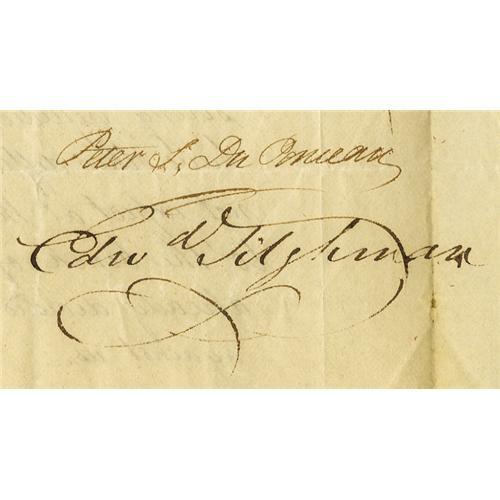 Peter S. Du Ponceau
Edwd Tilghman